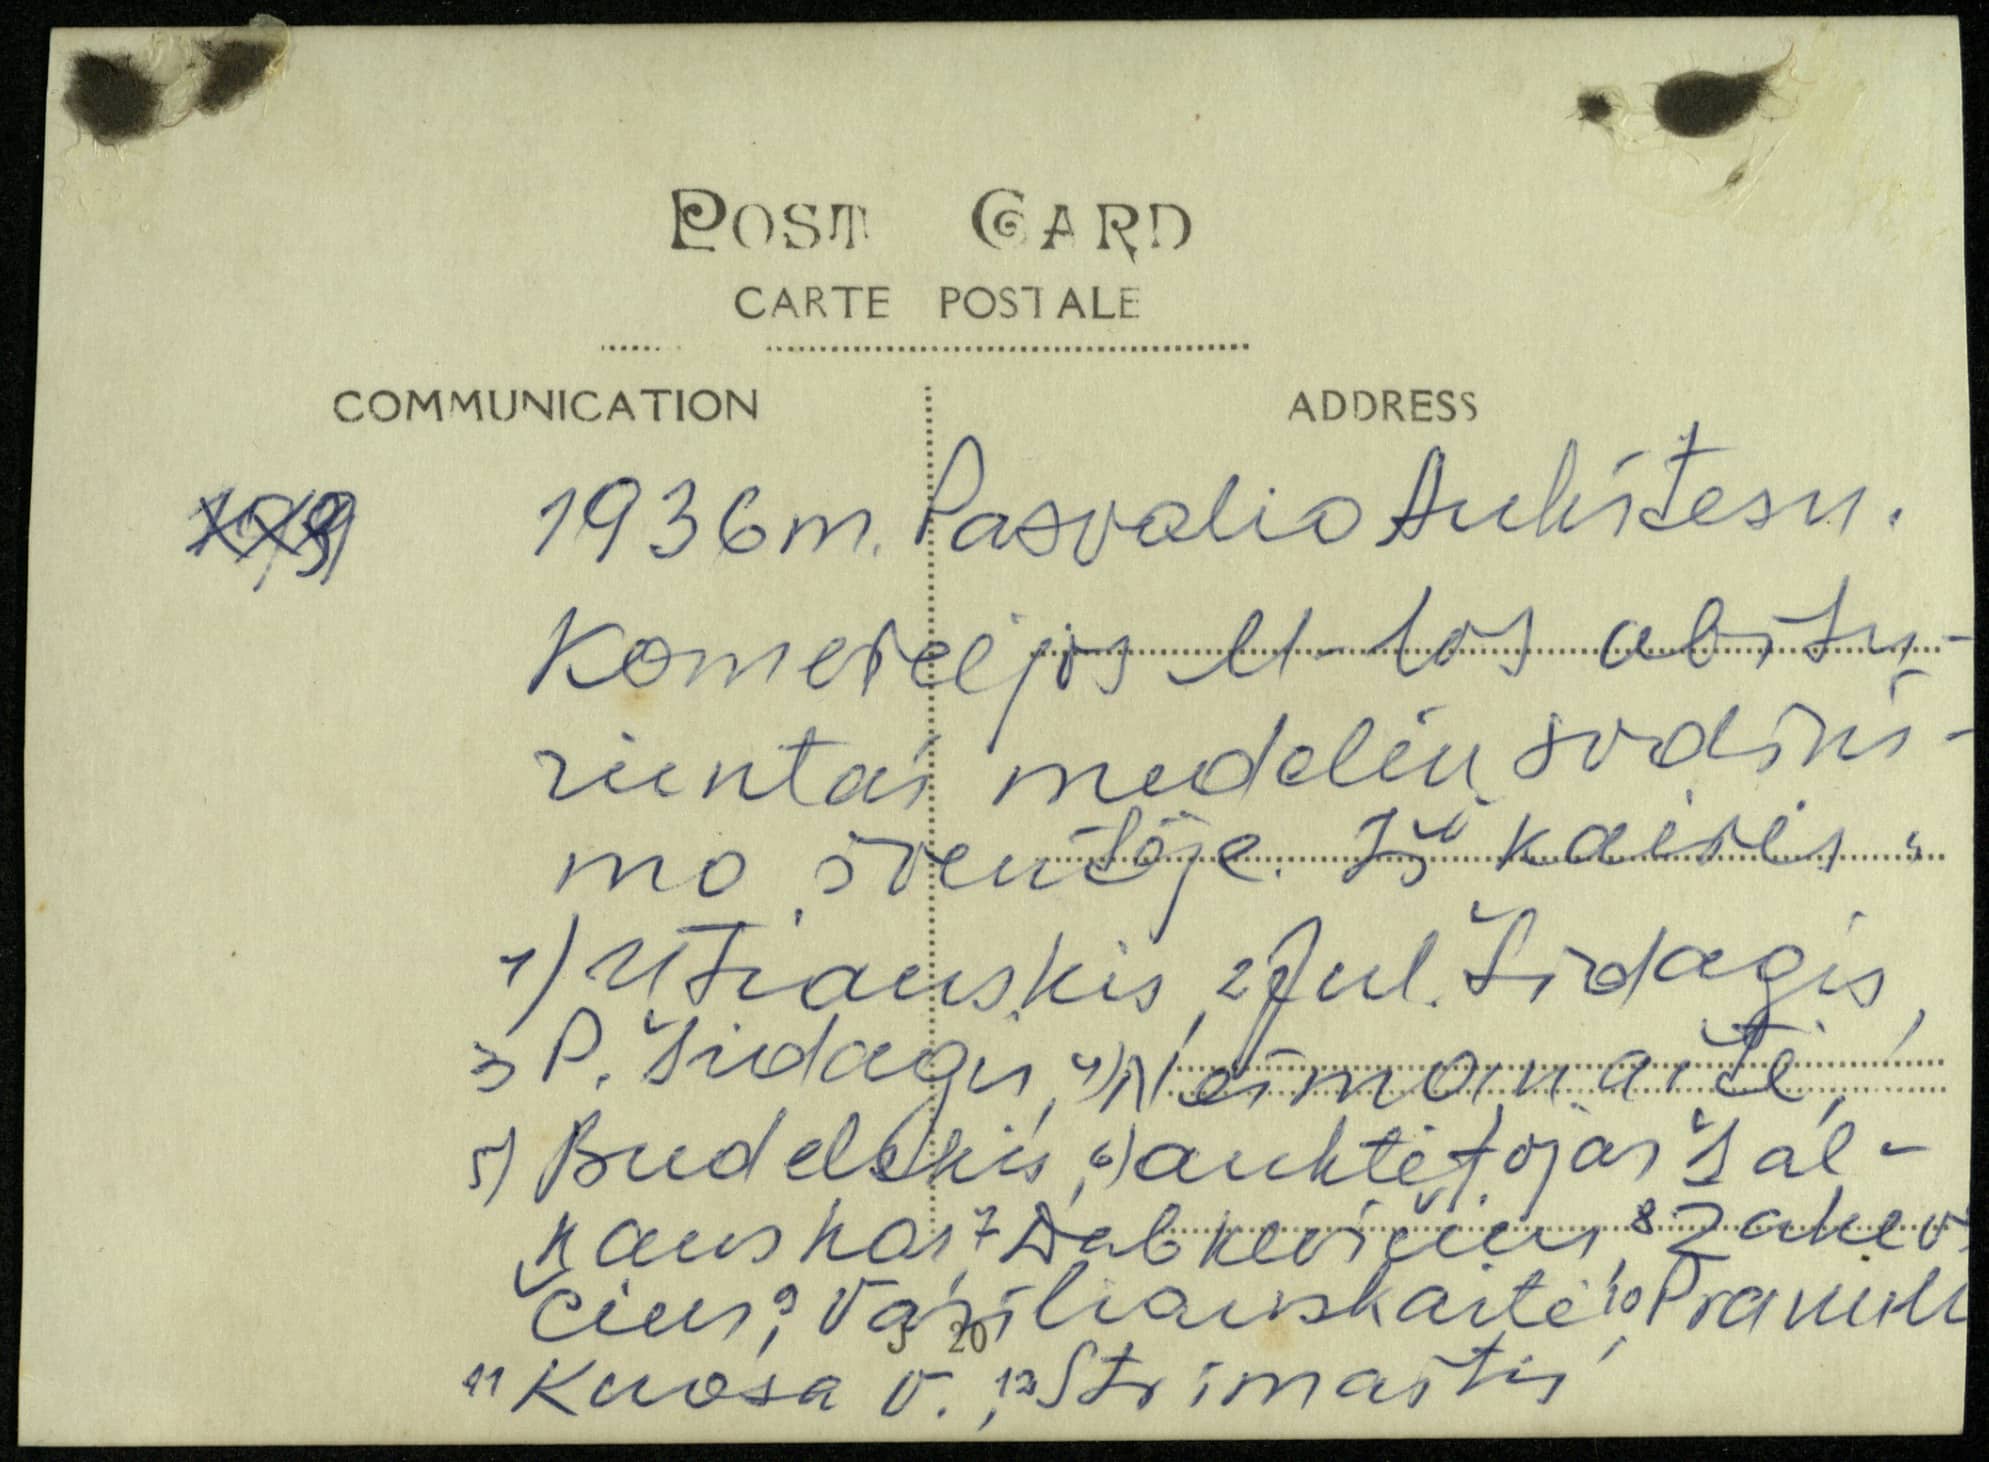 POST CARD
CARTE POSTALE
COMMUNICATION
ADDRESS
1936 m. Pasvalio Aukštesn.
Komercijos M-los abitu-
rientai medelių sodini-
mo šventėje. Iš kairės:
1) Užiauskis, 2) Jul. Židagis,
3) P. Židagis, 4) Neimonaitė,
5) Budelskis, 6) auklėtojas Žal-
kauskas, 7 Dabkevičius, 8 Zakevi
čius, 9, Vasiliauskaitė, 10
5 20
11 Kuosa V., 12 Strimaitis